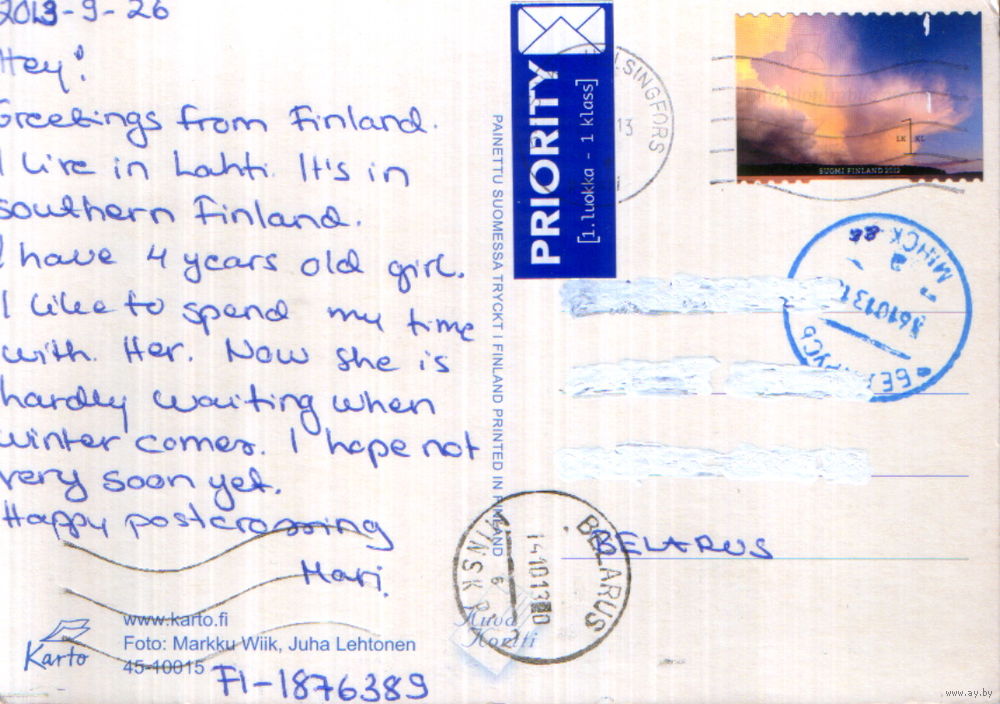 2013-9-26
Hey!
Greetings from Finland.
I live in Lahti. It's in
southern Finland.
I have 4 years old girl.
I like to spend my time
with. Her. Now she is
hardly waiting when
winter comes. I hope not
very soon yet.
Happy postcrossing
Mari.
www.karto.fi
Foto: Markku Wiik, Juha Lehtonen
45-10015
Karto
FI-1876389
PAINETTU SUOMESSA TRYCKT I FINLAND PRINTED IN FINLAND
PRIORITY
[1.luokka - 1 klass]
LSINGFORS
13
LK KL
SUOMI FINLAND 2012
МИНСК
БЕЛАРУСЬ
BELARUS
BELARUS
MINSK
141013
www.ay.by